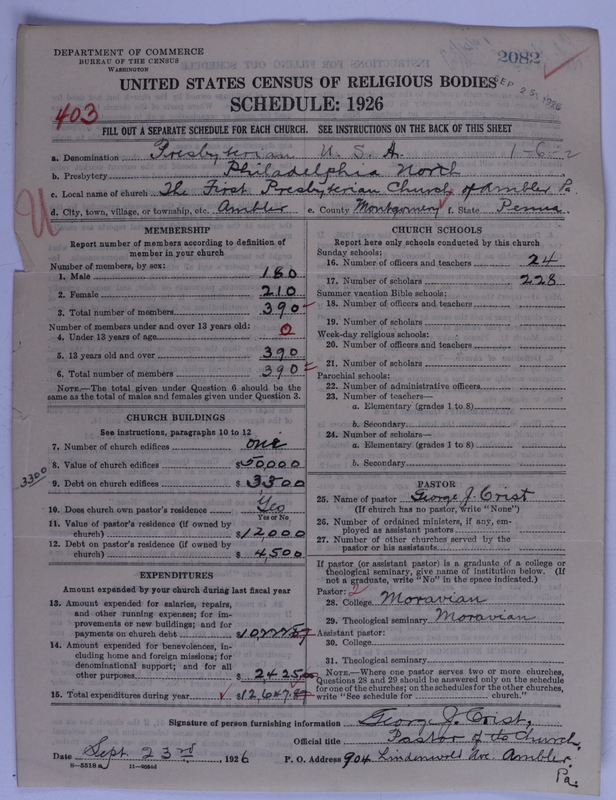 DEPARTMENT OF COMMERCE
BUREAU OF THE CENSUS
WASHINGTON
2082
UNITED STATES CENSUS OF RELIGIOUS BODIES
SEP 25 1926
SCHEDULE: 1926
403
FILL OUT A SEPARATE SCHEDULE FOR EACH CHURCH. SEE INSTRUCTIONS ON THE BACK OF THIS SHEET
a. Denomination Presbyterian U. S. A. 1-6-2
b. Presbytery Philadelphia North
c. Local name of church The First Presbyterian Church of Ambler Pa.
d. City, town, village, or township, etc. Ambler e. County Montgomery f. State Penna.
MEMBERSHIP
Report number of members according to definition of
member in your church
Number of members, by sex:
1. Male 180
2. Female 210
3. Total number of members 390
Number of members under and over 13 years old:
4. Under 13 years of age 0
5. 13 years old and over 390
6. Total number of members 390
NOTE.—The total given under Question 6 should be the
same as the total of males and females given under Question 3.
CHURCH BUILDINGS
See instructions, paragraphs 10 to 12
7. Number of church edifices one
8. Value of church edifices $50,000
3300
9. Debt on church edifices $3300
10. Does church own pastor's residence? Yes
Yes or No
11. Value of pastor's residence (if owned by
church) $12000
12. Debt on pastor's residence (if owned by
church) $4,500
EXPENDITURES
Amount expended by church during last fiscal year
13. Amount expended for salaries, repairs,
and other running expenses; for im-
provements or new buildings; and for
payments on church debt
14. Amount expended for benevolences, in-
cluding home and foreign missions; for
denominational support; and for all
other purposes $2425
15. Total expenditures during year
CHURCH SCHOOLS
Report here only schools conducted by this church
Sunday schools:
16. Number of officers and teachers 24
17. Number of scholars 228
Summer vacation Bible schools:
18. Number of officers and teachers
19. Number of scholars
Week-day religious schools:
20. Number of officers and teachers
21. Number of scholars
Parochial schools:
22. Number of administrative officers
23. Number of teachers—
a. Elementary (grades 1 to 8)
b. Secondary
24. Number of scholars—
a. Elementary (grades 1 to 8)
b. Secondary
PASTOR
25. Name of pastor George J. Crist
(If church has no pastor, write "None")
26. Number of ordained ministers, if any, em-
ployed as assistant pastors
27. Number of other churches served by the
pastor or his assistants
If pastor (or assistant pastor) is a graduate of a college or
theological seminary, give name of institution below. (If
not a graduate, write "No" in the space indicated.)
Pastor: 2
28. College Moravian
29. Theological seminary Moravian
Assistant pastor:
30. College
31. Theological seminary
NOTE.—Where one pastor serves two or more churches,
Questions 28 and 29 should be answered only on the schedule
for one of the churches; on the schedules for the other churches,
write "See schedule for ........ church."
Signature of person furnishing information George J. Crist,
Official title Pastor of the Church,
Date Sept. 23rd, 1926 P. O. Address 904 Lindenwold Ave. Ambler,
Pa.